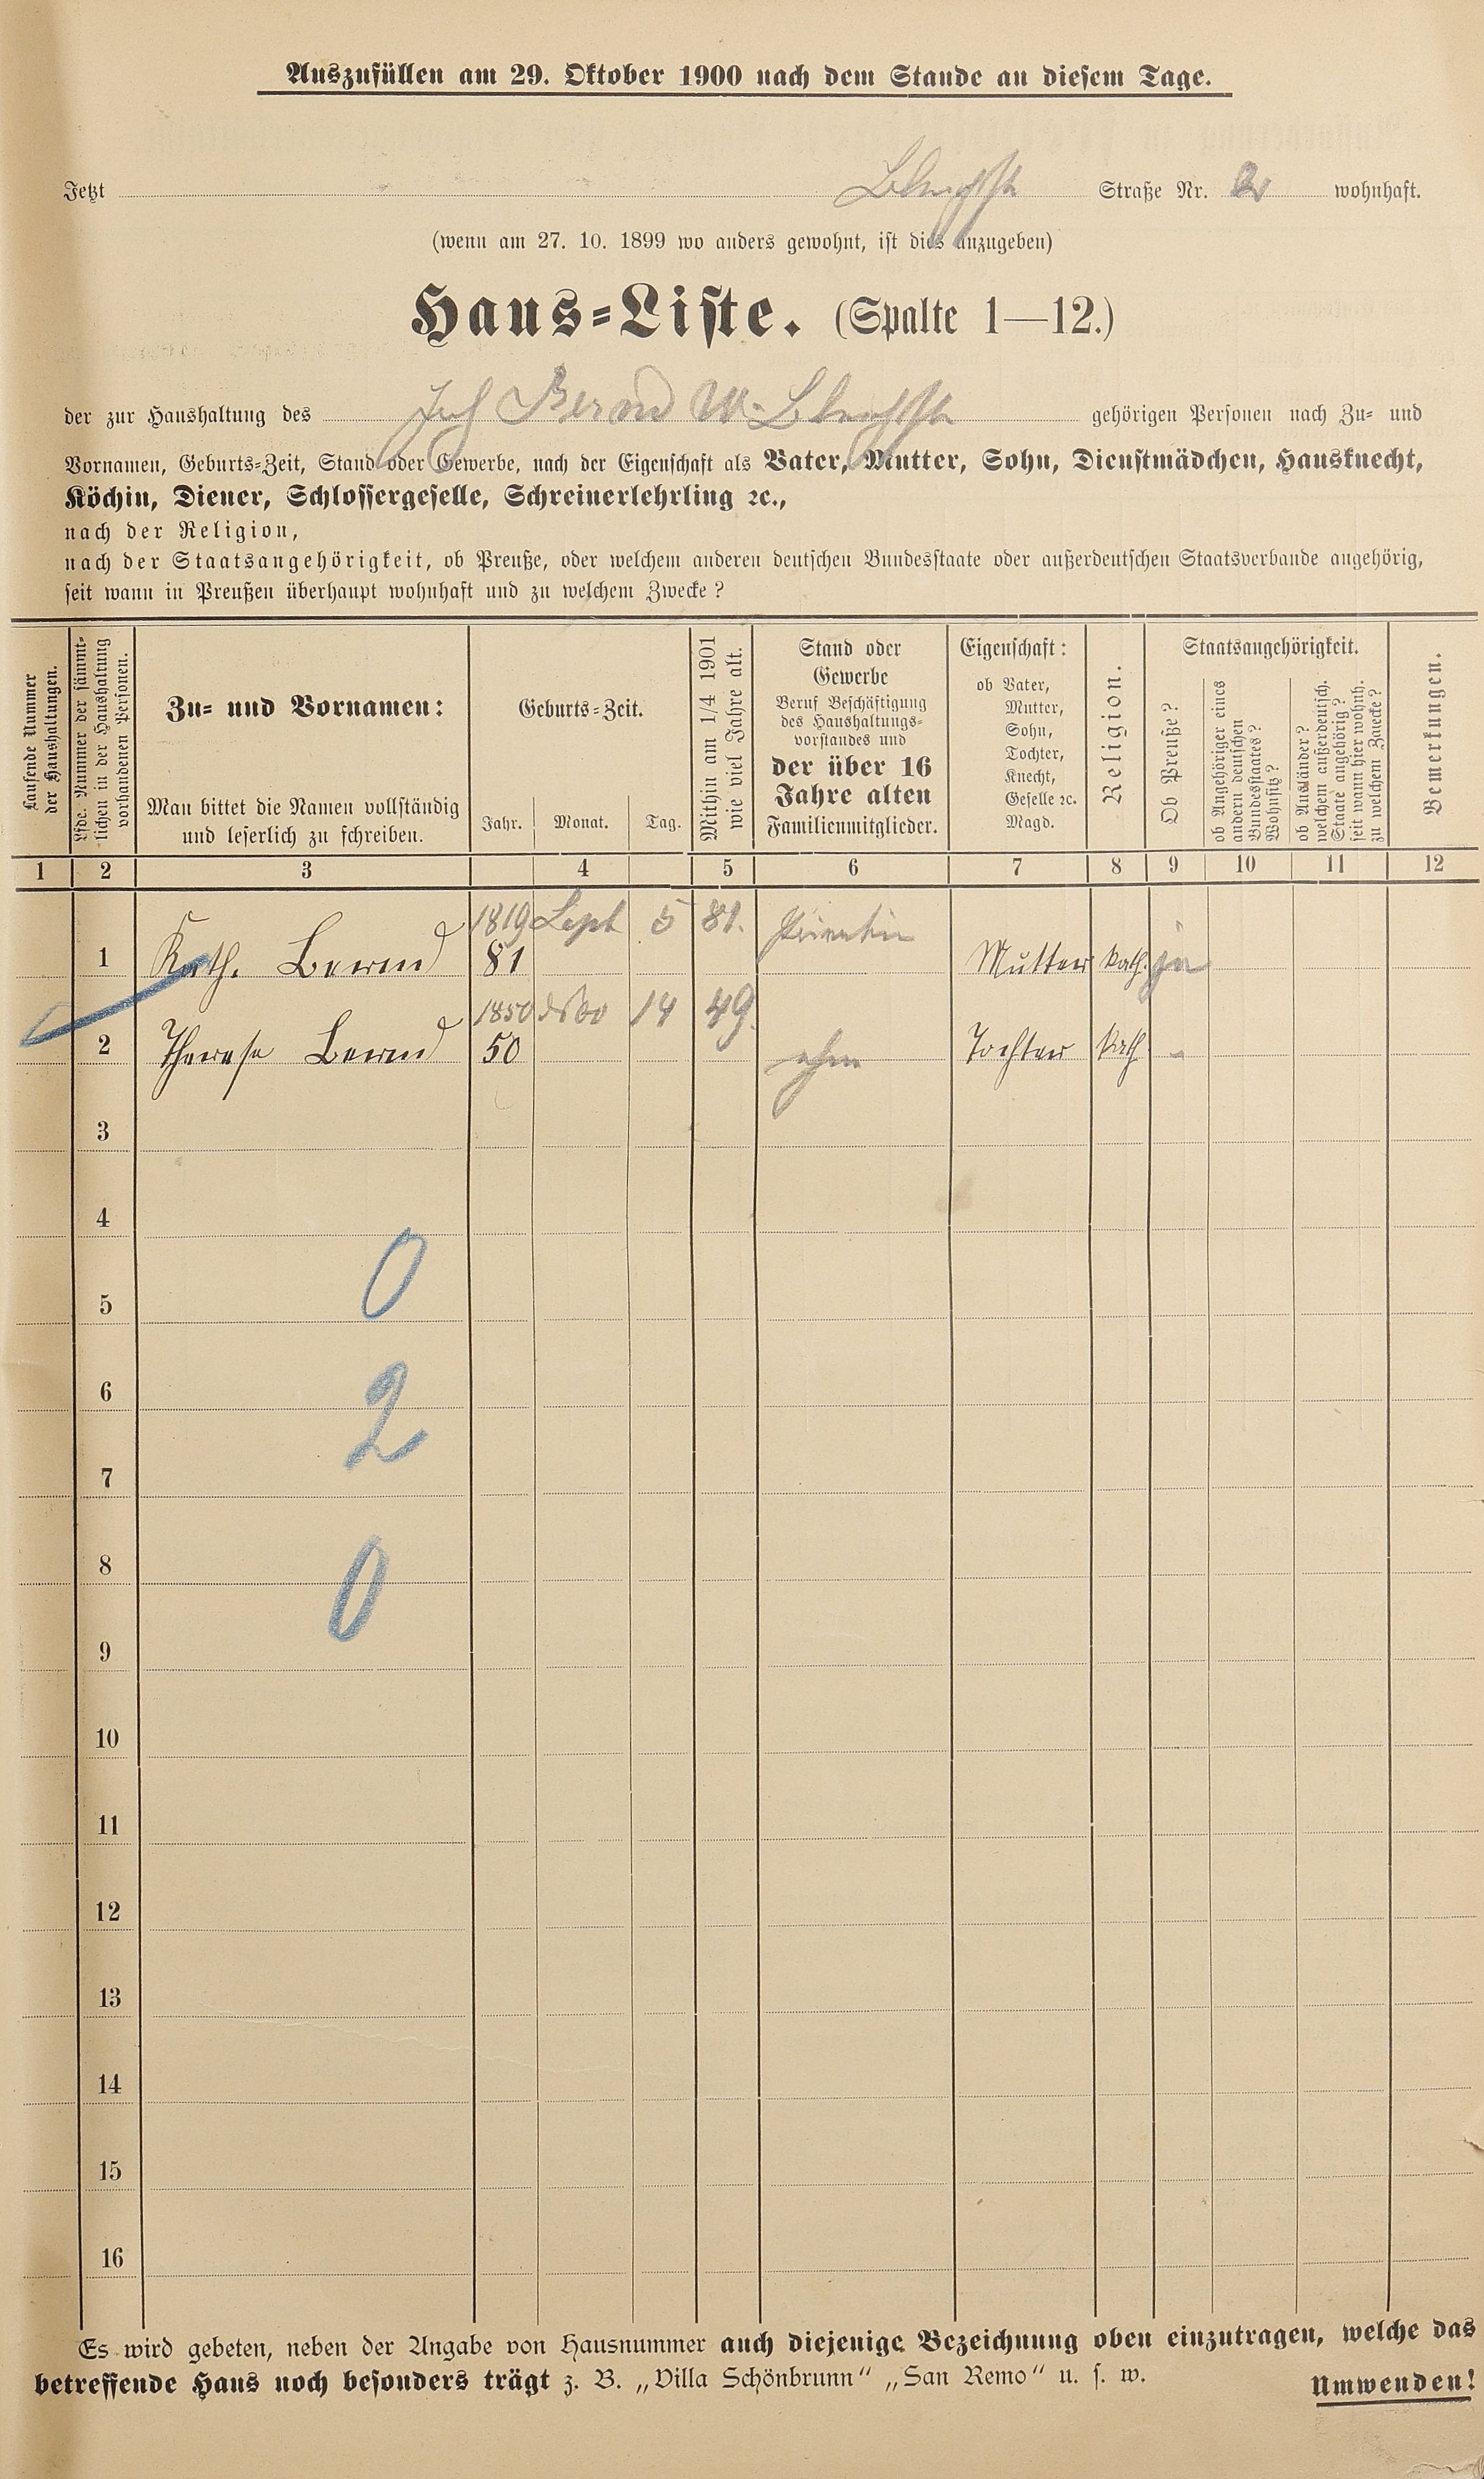 Auszufüllen am 29. Oktober 1900 nach dem Stande an diesem Tage.
Jetzt Straße Nr. 2 wohnhaft.
(wenn am 27. 10. 1899 wo anders gewohnt, ist dies anzugeben)
Haus-Liste. (Spalte 1—12.)
der zur Haushaltung des Bernd W. gehörigen Personen nach Zu- und
Vornamen, Geburts-Zeit, Stand oder Gewerbe, nach der Eigenschaft als Vater, Mutter, Sohn, Dienstmädchen, Hausknecht,
Köchin, Diener, Schlossergeselle, Schreinerlehrling ꝛc.,
nach der Religion,
nach der Staatsangehörigkeit, ob Preuße, oder welchem anderen deutschen Bundesstaate oder außerdeutschen Staatsverbande angehörig,
seit wann in Preußen überhaupt wohnhaft und zu welchem Zwecke?
Laufende Nummer
der Haushaltungen.
Lfde. Nummer der sämmt-
lichen in der Haushaltung
vorhandenen Personen.
Zu- und Vornamen:
Man bittet die Namen vollständig
und leserlich zu schreiben.
Geburts-Zeit.
Jahr. Monat. Tag.
Mithin am 1/4 1901
wie viel Jahre alt.
Stand oder
Gewerbe
Beruf Beschäftigung
des Haushaltungs-
vorstandes und
der über 16
Jahre alten
Familienmitglieder.
Eigenschaft:
ob Vater,
Mutter,
Sohn,
Tochter,
Knecht,
Geselle ꝛc.
Magd.
Religion.
Staatsangehörigkeit.
Ob Preuße?
ob Angehöriger eines
andern deutschen
Bundesstaates?
Wohnsitz?
ob Ausländer?
welchem außerdeutsch.
Staate angehörig?
seit wann hier wohnh.
zu welchem Zwecke?
Bemerkungen.
1 2 3 4 5 6 7 8 9 10 11 12
1819 Sept 5 81.
1 Kath. Bernd 81 Mutter kath. ja
1850 14 49.
2 Therese Bernd 50 ohne Tochter kath -
3
4
0
5
6
2
7
8
0
9
10
11
12
13
14
15
16
Es wird gebeten, neben der Angabe von Hausnummer auch diejenige Bezeichnung oben einzutragen, welche das
betreffende Haus noch besonders trägt z. B. „Villa Schönbrunn" „San Remo" u. s. w.
Umwenden!